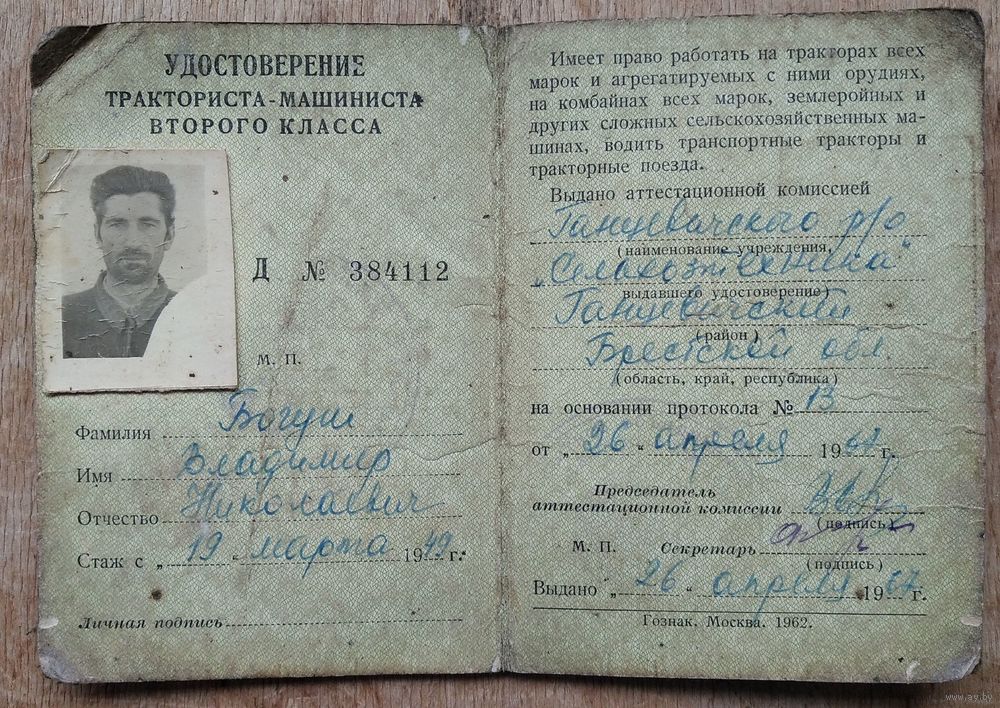 УДОСТОВЕРЕНИЕ
ТРАКТОРИСТА-МАШИНИСТА
ВТОРОГО КЛАССА
Д № 384112
М. П.
Фамилия Богуш
Имя Владимир
Отчество Николаевич
Стаж с „19 “ марта 1949 г.
Личная подпись
Имеет право работать на тракторах всех
марок и агрегатируемых с ними орудиях,
на комбайнах всех марок, землеройных и
других сложных сельскохозяйственных ма-
шинах, водить транспортные тракторы и
тракторные поезда.
Выдано аттестационной комиссией
Ганцевичского р/о
(наименование учреждения,
„Сельхозтехника“
выдавшего удостоверение)
Ганцевичский
(район)
Брестской обл.
(область, край, республика)
на основании протокола № 13
от „ 26 “ апреля 1967 г.
Председатель
аттестационной комиссии
(подпись)
М. П. Секретарь
(подпись)
Выдано „ 26 “ апреля 1967 г.
Гознак. Москва. 1962.
www.ay.by